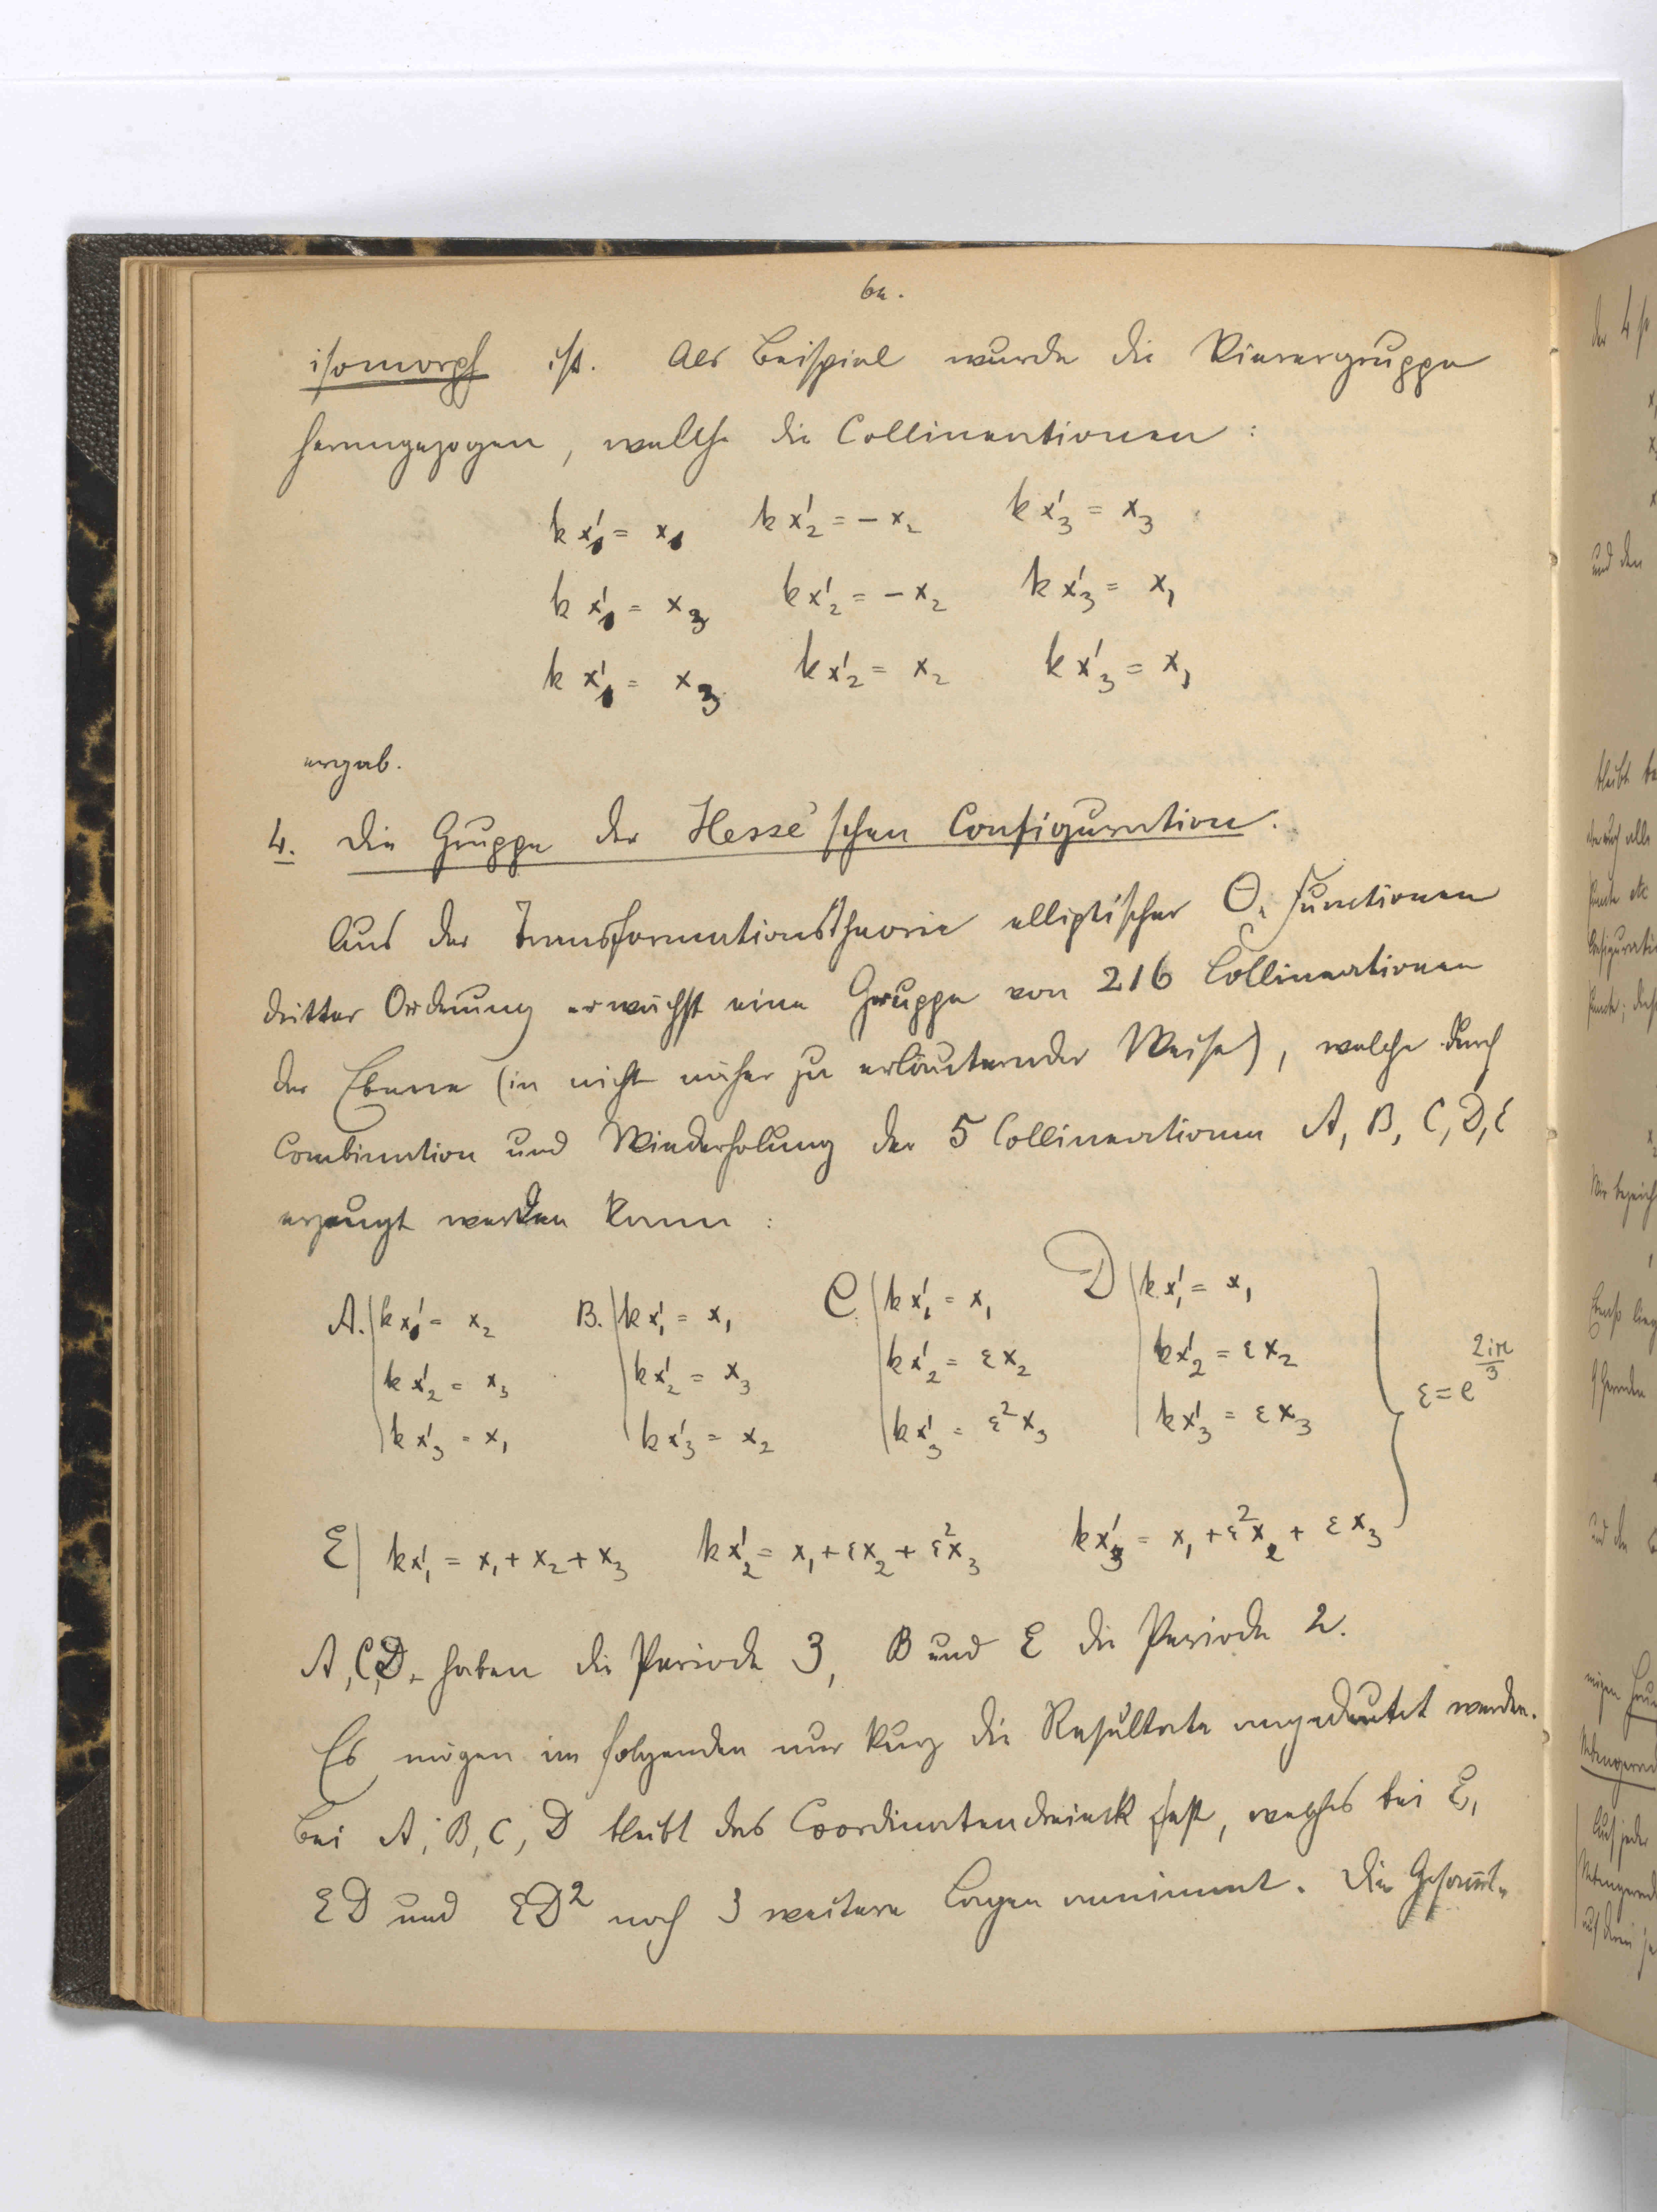 64.
isomorph ist. Als Beispiel wurde die Vierergruppe
herangezogen, welche die Collineationen:
k x'₁ = x₁ k x'₂ = − x₂ k x'₃ = x₃
k x'₁ = x₃ k x'₂ = − x₂ k x'₃ = x₁
k x'₁ = x₃ k x'₂ = x₂ k x'₃ = x₁
ergab.
4. Die Gruppe der Hesse'schen Configuration.
Aus der Transformationstheorie elliptischer Θ-Functionen
dritter Ordnung erwächst eine Gruppe von 216 Collineationen
der Ebene (in nicht näher zu erläuternder Weise), welche durch
Combination und Wiederholung der 5 Collineationen A, B, C, D, E
erzeugt werden kann:
A. | k x'₁ = x₂ B. | k x'₁ = x₁ C. | k x'₁ = x₁ D | k x'₁ = x₁
k x'₂ = x₃ k x'₂ = x₃ k x'₂ = ε x₂ k x'₂ = ε x₂ ε = e^{2iπ/3}
k x'₃ = x₁ k x'₃ = x₂ k x'₃ = ε² x₃ k x'₃ = ε x₃
E | k x'₁ = x₁ + x₂ + x₃ k x'₂ = x₁ + ε x₂ + ε² x₃ k x'₃ = x₁ + ε² x₂ + ε x₃
A, C, D haben die Periode 3, B und E die Periode 2.
Es mögen im folgenden nur kurz die Resultate angedeutet werden.
Bei A, B, C, D bleibt das Coordinatendreieck fest, welches bei E,
ED und ED² noch 3 weitere Lagen annimmt. Die Gesammt-